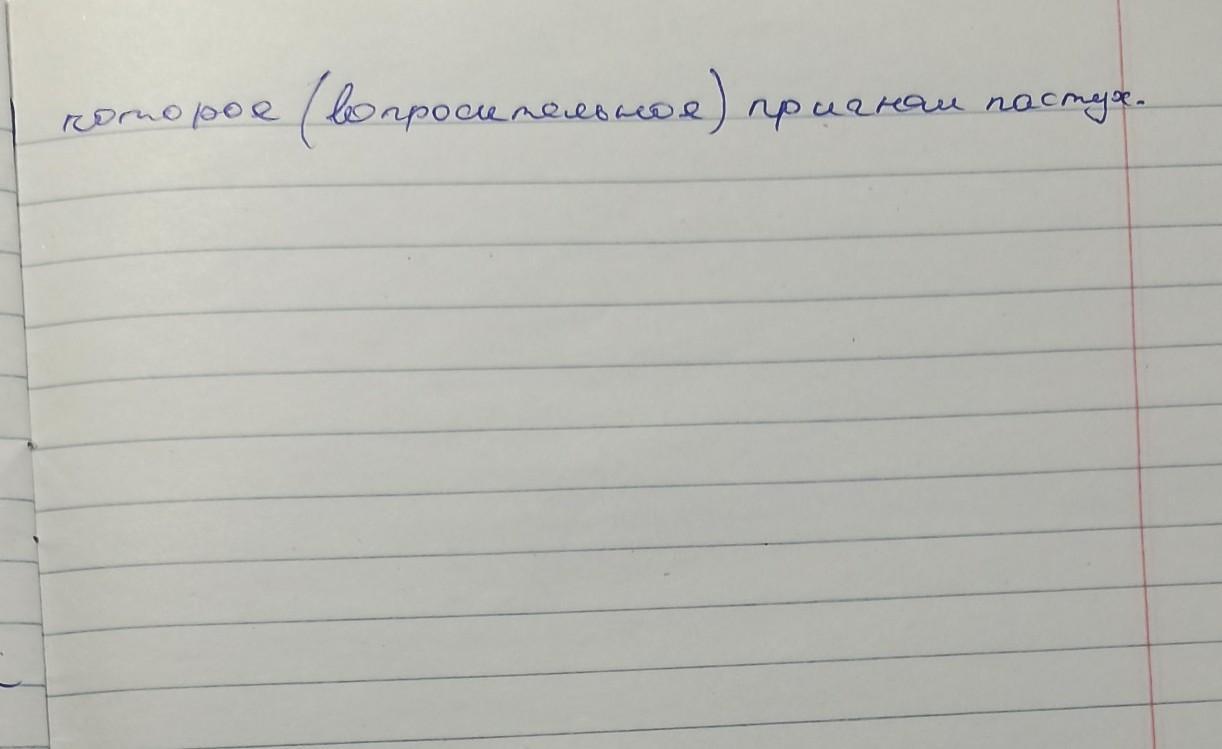 которое (вопросительное) пригнал пастух.